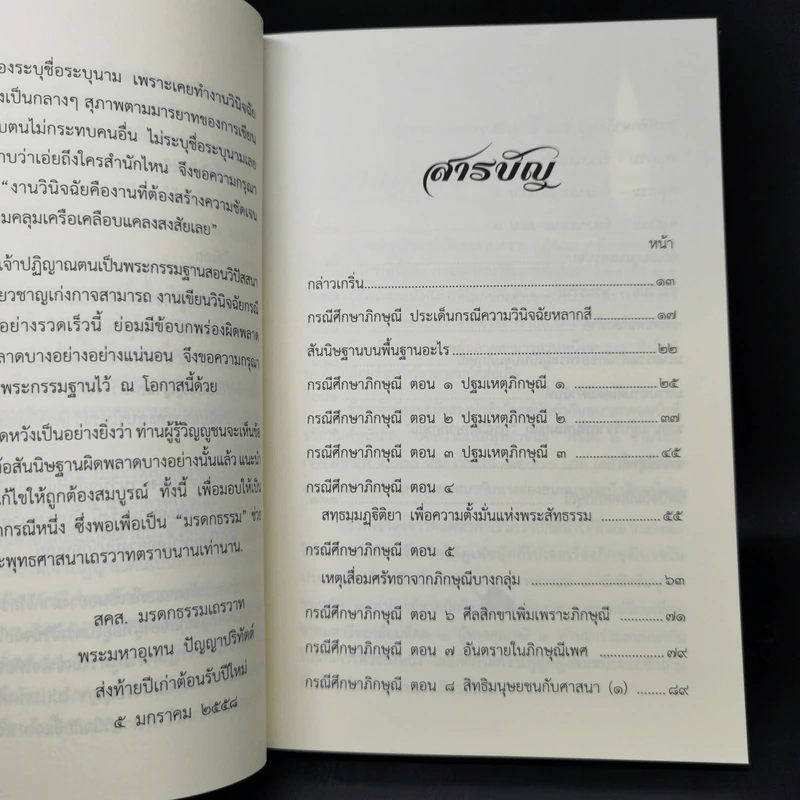 องระบุชื่อระบุนาม เพราะเคยทำงานวินิจฉัย
งเป็นกลางๆ สุภาพตามมารยาทของการเขียน
บตนไม่กระทบคนอื่น ไม่ระบุชื่อระบุนามเลย
าบว่าเอ่ยถึงใครสำนักไหน จึงขอความกรุณา
“งานวินิจฉัยคืองานที่ต้องสร้างความชัดเจน
มคลุมเครือเคลือบแคลงสงสัยเลย”
เจ้าปฏิญาณตนเป็นพระกรรมฐานสอนวิปัสสนา
ยวชาญเก่งกาจสามารถ งานเขียนวินิจฉัยกรณี
อย่างรวดเร็วนี้ ย่อมมีข้อบกพร่องผิดพลาด
ลาดบางอย่างอย่างแน่นอน จึงขอความกรุณา
พระกรรมฐานไว้ ณ โอกาสนี้ด้วย
ดหวังเป็นอย่างยิ่งว่า ท่านผู้รู้วิญญูชนจะเห็นข้อ
้อสันนิษฐานผิดพลาดบางอย่างนั้นแล้ว แนะนำ
ก้ไขให้ถูกต้องสมบูรณ์ ทั้งนี้ เพื่อมอบให้เป็น
ากรณีหนึ่ง ซึ่งพอเพื่อเป็น “มรดกธรรม” ช่วย
ะพุทธศาสนาเถรวาทตราบนานเท่านาน.
สคส. มรดกธรรมเถรวาท
พระมหาอุเทน ปัญญาปริทัตต์
ส่งท้ายปีเก่าต้อนรับปีใหม่
๕ มกราคม ๒๕๕๘
สารบัญ
หน้า
กล่าวเกริ่น......๑๓
กรณีศึกษาภิกษุณี ประเด็นกรณีความวินิจฉัยหลากสี......๑๗
สันนิษฐานบนพื้นฐานอะไร......๒๒
กรณีศึกษาภิกษุณี ตอน ๑ ปฐมเหตุภิกษุณี ๑ ......๒๕
กรณีศึกษาภิกษุณี ตอน ๒ ปฐมเหตุภิกษุณี ๒ ......๓๗
กรณีศึกษาภิกษุณี ตอน ๓ ปฐมเหตุภิกษุณี ๓ ......๔๕
กรณีศึกษาภิกษุณี ตอน ๔
สทฺธมฺมฏฺฐิติยา เพื่อความตั้งมั่นแห่งพระสัทธรรม ......๕๕
กรณีศึกษาภิกษุณี ตอน ๕
เหตุเสื่อมศรัทธาจากภิกษุณีบางกลุ่ม ......๖๓
กรณีศึกษาภิกษุณี ตอน ๖ ศีลสิกขาเพิ่มเพราะภิกษุณี ......๗๑
กรณีศึกษาภิกษุณี ตอน ๗ อันตรายในภิกษุณีเพศ ......๗๙
กรณีศึกษาภิกษุณี ตอน ๘ สิทธิมนุษยชนกับศาสนา (๑) ......๘๙